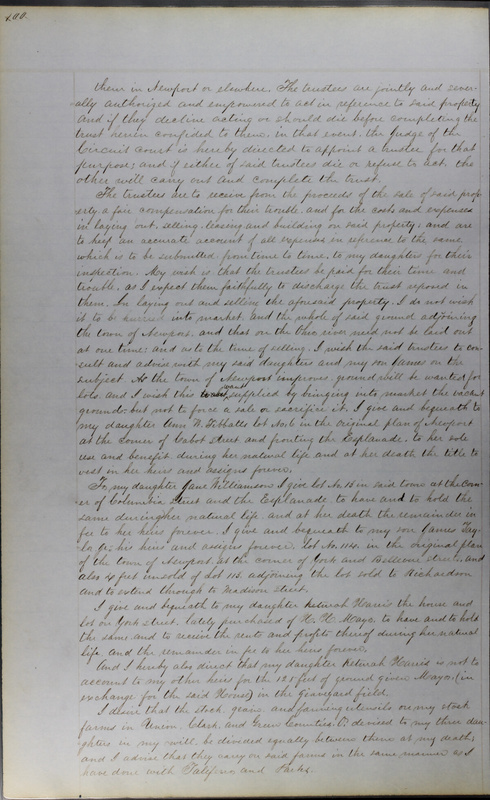 400.
them in Newport or elsewhere. The trustees are jointly and sever-
ally authorized and empowered to act in reference to said property
and if they decline acting or should die before completing the
trust herein confided to them, in that event, the judge of the
Circuit court is hereby directed to appoint a trustee for that
purpose; and if either of said trustees die or refuse to act, the
other will carry out and complete the trust.
The trustees are to receive from the proceeds of the sale of said prop-
erty, a fair compensation for their trouble, and for the costs and expenses
in laying out, selling, leasing and building on said property; and are
to keep an accurate account of all expenses in reference to the same
which is to be submitted, from time to time, to my daughters for their
inspection. My wish is, that the trustees be paid for their time and
trouble, as I expect them faithfully to discharge the trust reposed in
them. In laying out and selling the aforesaid property, I do not wish
it to be into market, and the whole of said ground adjoining
the town of Newport, and that on the Ohio river need not be laid out
at one time; and as to the time of selling, I wish the said trustees to con-
sult and advise with my said daughters and my son James on the
subject. As the town of Newport improves, ground will be wanted for
lots, and I wish this want supplied by bringing into market the vacant
grounds; but not to force a sale or sacrifice it. I give and bequeath to
my daughter Ann W. Tibbatts lot No. 6 in the original plan of Newport
at the corner of Cabot street and fronting the Esplanade, to her sole
use and benefit, during her natural life and at her death the title to
vest in her heirs and assigns forever.
To, my daughter Jane Williamson I give lot No. 18 in said town at the Corn-
er of Columbia street and the Esplanade, to have and to hold the
same during her natural life, and at her death the remainder in
fee to her heirs forever. I give and bequeath to my son James Tay-
lor jr, his heirs and assigns forever, lot No. 114, in the original plan
of the town of Newport, at the corner of York and Bellevue streets, and
also 4 feet in sold of lot 113, adjoining the lot sold to Richardson
and to extend through to Madison street.
I give and bequeath to my daughter Keturah Harris the house and
lot on York street, lately purchased of H. H. Mayo, to have and to hold
the same, and to receive the rents and profits thereof during her natural
life, and the remainder in fee to her heirs forever.
And I hereby also direct that my daughter Keturah Harris is not to
account to my other heirs for the 125 feet of ground given Mayo, (in
exchange for the said House) in the graveyard field.
I desire that the stock, grain, and farming utensils on my stock
farms in Union, Clark, and Green Counties O; devised to my three dau-
ghters in my will, be divided equally between them at my death;
and I advise that they carry on said farms in the same manner as I
have done with Taliferro and Parks.